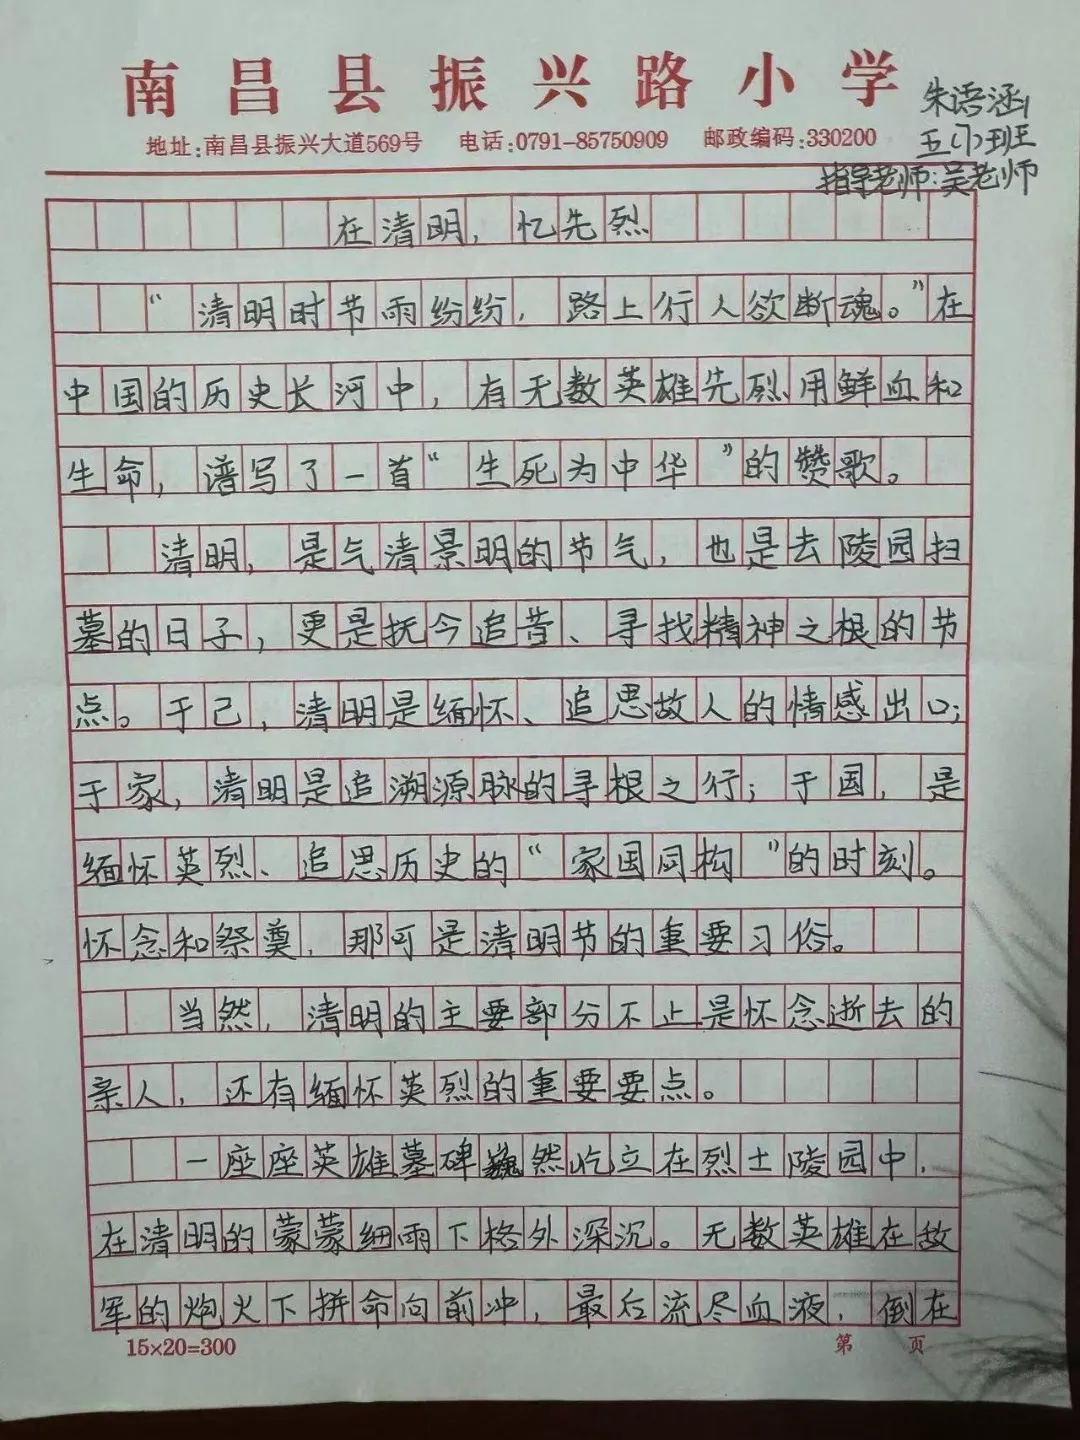 南昌县振兴路小学
地址:南昌县振兴大道569号 电话:0791-85750909 邮政编码:330200
朱语涵
五(1)班
指导老师:吴老师
在清明，忆先烈
“清明时节雨纷纷，路上行人欲断魂。”在
中国的历史长河中，有无数英雄先烈用鲜血和
生命，谱写了一首“生死为中华”的赞歌。
清明，是气清景明的节气，也是去陵园扫
墓的日子，更是抚今追昔、寻找精神之根的节
点。于己，清明是缅怀、追思故人的情感出口；
于家，清明是追溯源脉的寻根之行；于国，是
缅怀英烈、追思历史的“家国同构”的时刻。
怀念和祭奠，那可是清明节的重要习俗。
当然，清明的主要部分不止是怀念逝去的
亲人，还有缅怀英烈的重要要点。
一座座英雄墓碑巍然屹立在烈士陵园中，
在清明的蒙蒙细雨下格外深沉。无数英雄在敌
军的炮火下拼命向前冲，最后流尽血液，倒在
15×20=300
第 页